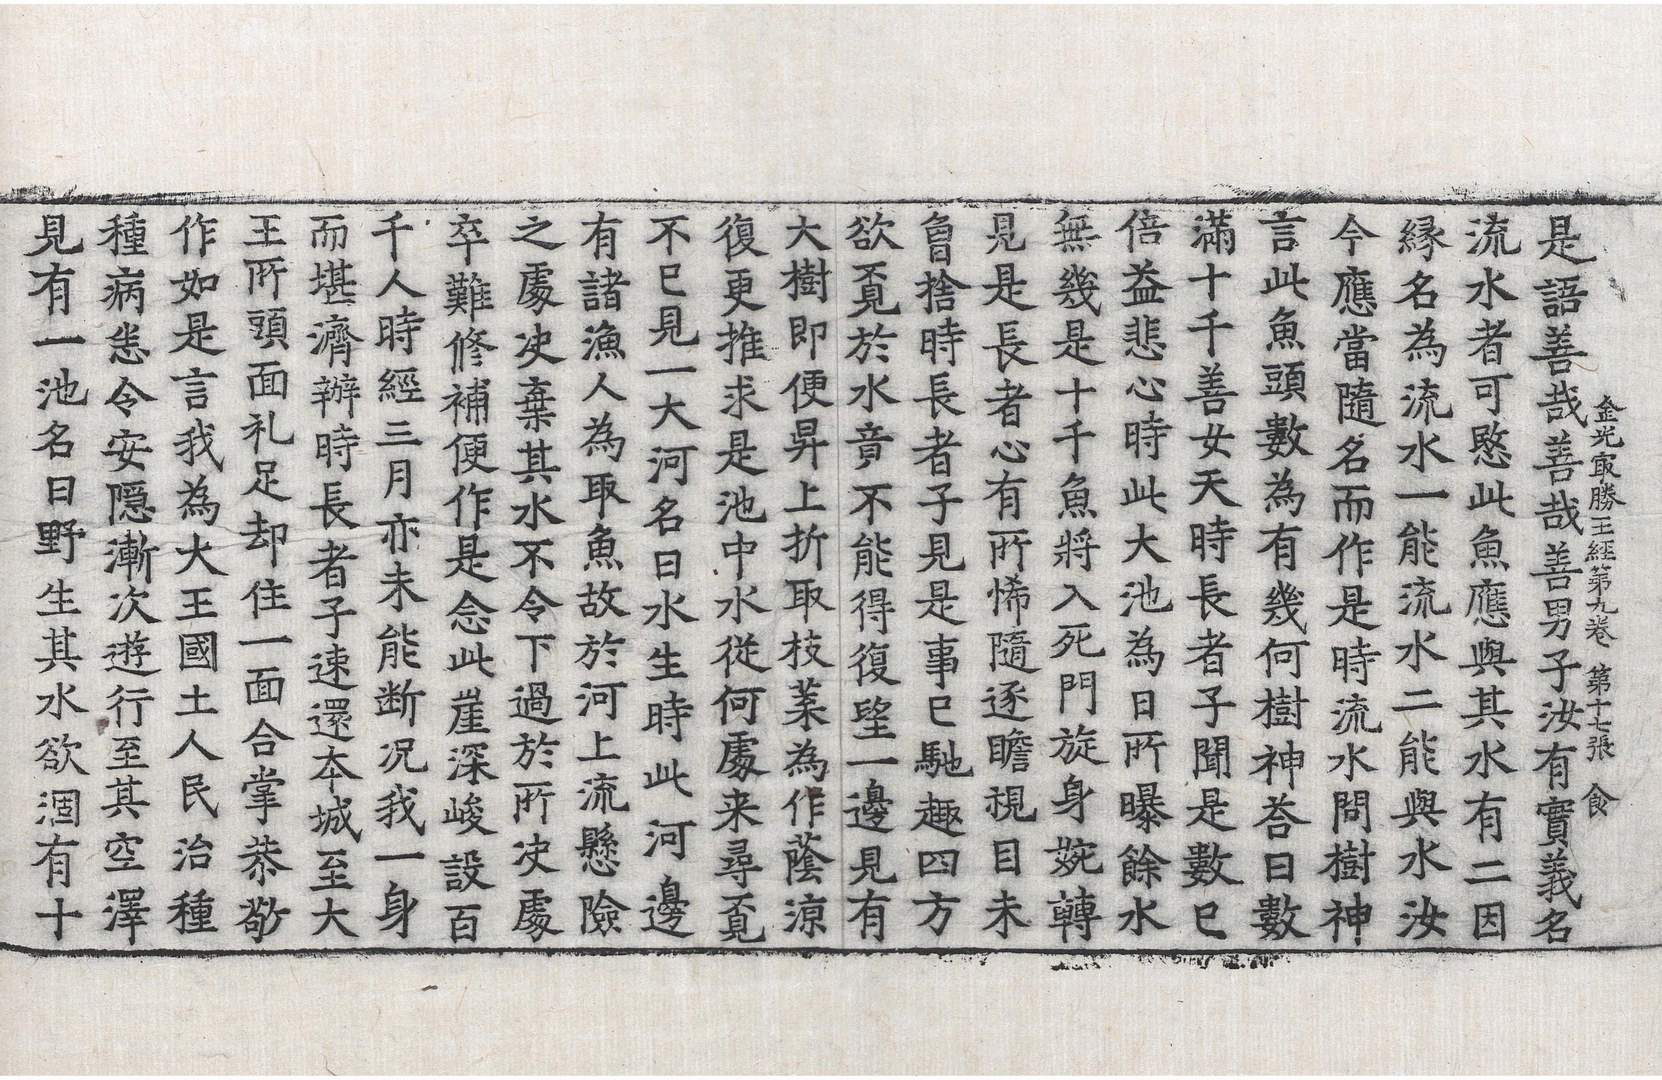 金光㝡勝王經第九卷　第十七張　食
是語善哉善哉善男子汝有實義名
流水者可愍此魚應與其水有二因
縁名為流水一能流水二能與水汝
今應當隨名而作是時流水問樹神
言此魚頭數為有幾何樹神荅曰數
滿十千善女天時長者子聞是數已
倍益悲心時此大池為日所曝餘水
無幾是十千魚將入死門旋身婉轉
見是長者心有所悕隨逐瞻視目未
曾捨時長者子見是事已馳趣四方
欲覓於水竟不能得復望一邊見有
大樹即便昇上折取枝葉為作蔭涼
復更推求是池中水從何處来尋覓
不已見一大河名曰水生時此河邊
有諸漁人為取魚故於河上流懸險
之處决棄其水不令下過於所决處
卒難修補便作是念此崖深峻設百
千人時經三月亦未能断况我一身
而堪濟辦時長者子速還本城至大
王所頭面礼足却住一面合掌恭敬
作如是言我為大王國土人民治種
種病悉令安隱漸次遊行至其空澤
見有一池名曰野生其水欲涸有十